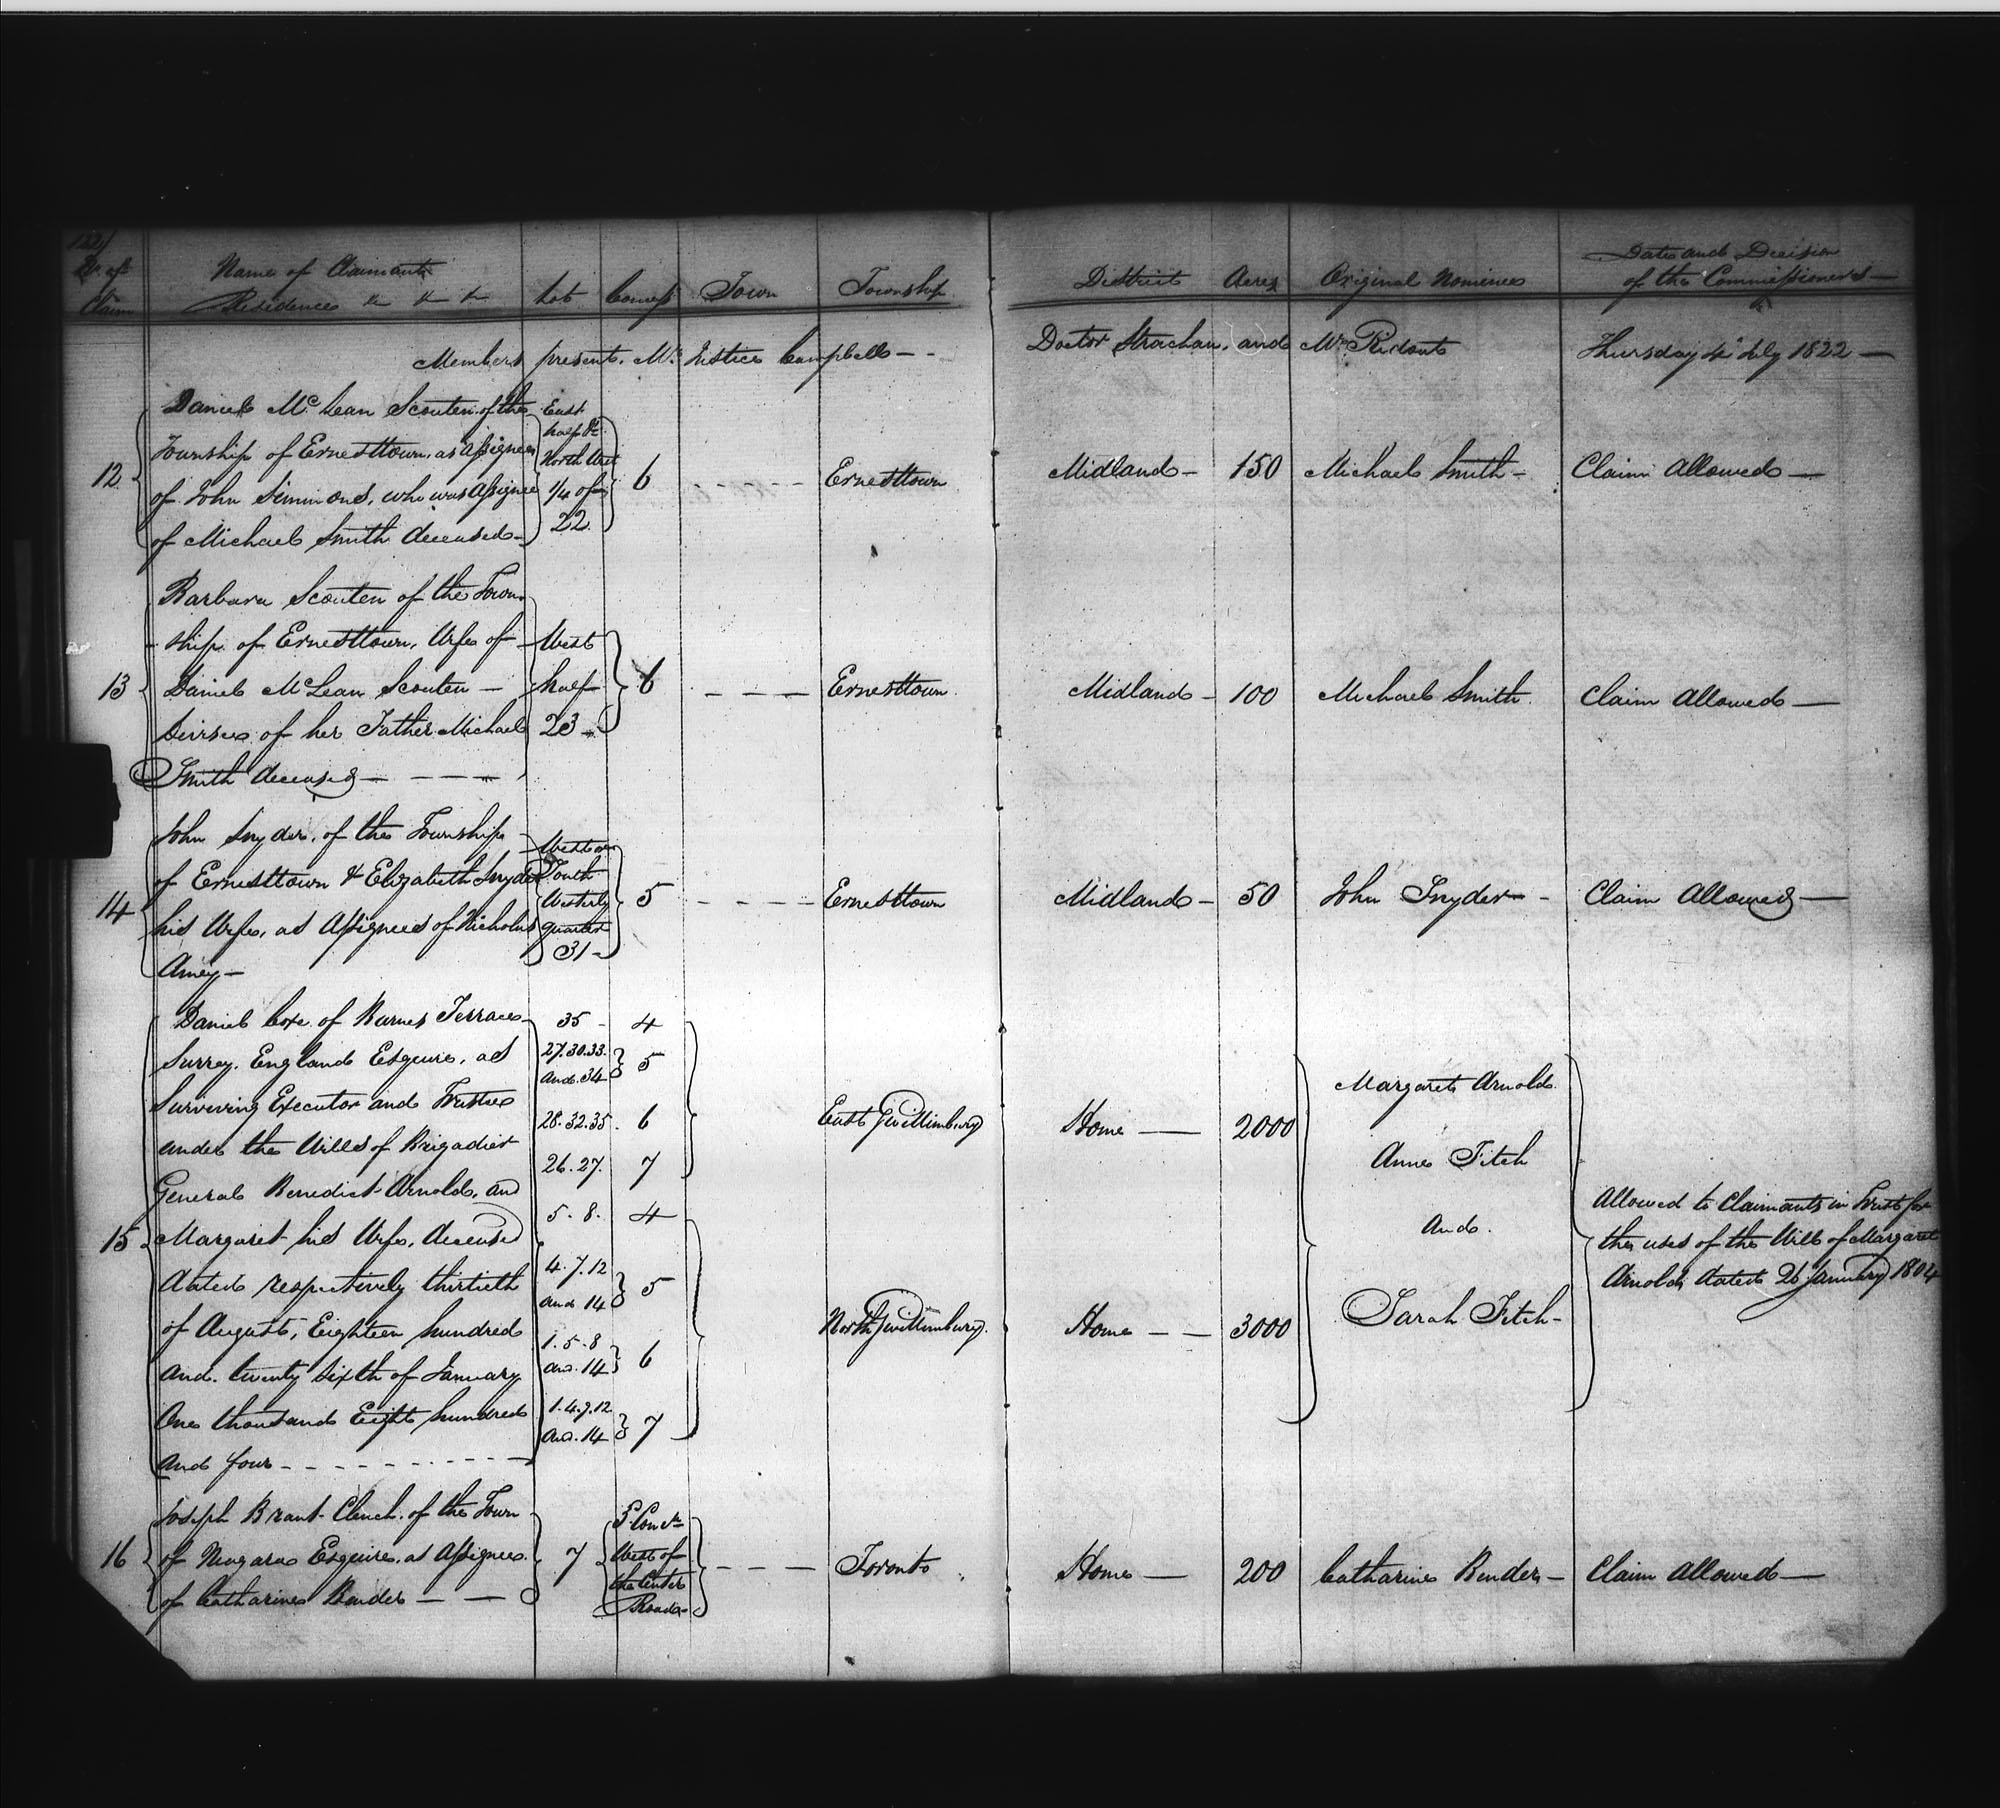 No. of Claim | Name of Claimant Residence &c &c &c | Lot | Concess | Town | Township | District | Acres | Original Nominee | Date and Decision of the Commissioners —
Members present. Mr. Justice Campbell — - Doctor Strachan, and Mr Ridout Thursday 4th July 1822 —
Daniel McLean Scouten of the
Township of Ernesttown, as Assignee
12 of John Simmons, who was Assignee
of Michael Smith deceased —
East
half &
North West
1/4 of
22.
6 - - - - Ernesttown Midland - 150 Michael Smith - Claim Allowed —
Barbara Scouten of the Town-
-ship of Ernesttown, Wife of
13 Daniel McLean Scouten —
Devisee of her Father Michael
Smith deceased — - — — —
West
half
23 -
6 - — — Ernesttown Midland - 100 Michael Smith Claim Allowed —
John Snyder, of the Township
of Ernesttown & Elizabeth Snyder
14 his Wife, as Assignees of Nicholas
Amey —
West or
South
Westerly
quarter
31 -
5 - - - - Ernesttown Midland - 50 John Snyder - Claim Allowed —
Daniel Coxe of Barnes Terrace
Surrey. England Esquire, as
Surviving Executor and Trustee
under the Wills of Brigadier
General Benedict Arnold, and
15 Margaret his Wife, deceased
dated respectively thirtieth
of August, Eighteen hundred
and twenty sixth of January
One thousand Eight hundred
and four - - - - - - -
35 - 4
27.30.33.
and 34 5
28.32.35. 6
26.27. 7
East Gwillimbury Home — 2000
5. 8. 4
4. 7. 12
and 14 5
1. 5. 8
and. 14 6
1. 4. 7. 12
and. 14 7
North Gwillimbury. Home — — 3000
Margaret Arnold
Anne Fitch
And.
Sarah Fitch -
Allowed to Claimants in Trust for
the uses of the Will of Margaret
Arnold, dated 26 January 1804
Joseph Brant Clench of the Town
16 of Niagara Esquire, as Assignee
of Catharine Bender — —
7
5 Conc.
West of
the Center
Road -
- — — Toronto Home — 200 Catharine Bender — Claim Allowed —